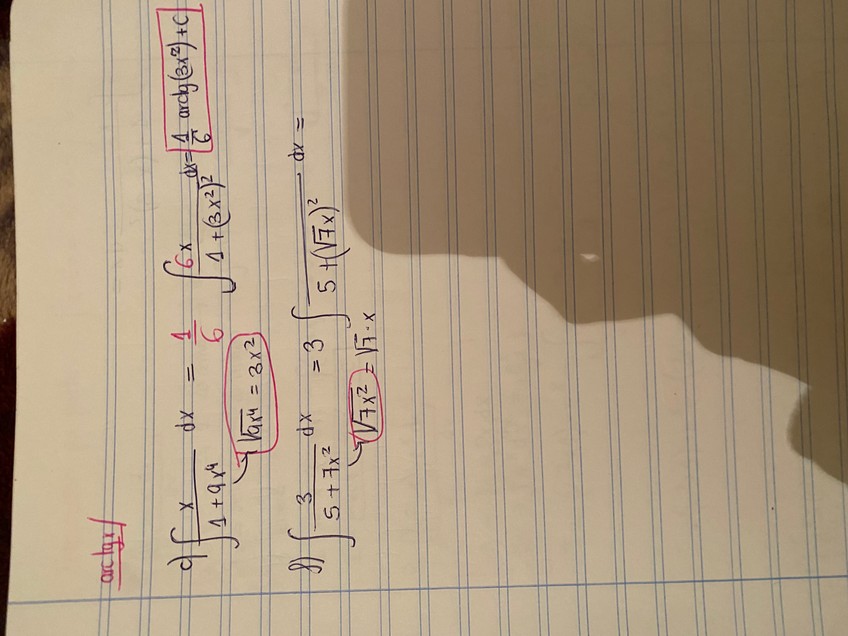 arctg x
c) ∫ x / (1 + 9x⁴) dx = 1/6 ∫ 6x / (1 + (3x²)²) dx = 1/6 arctg(3x²) + C
√9x⁴ = 3x²
f) ∫ 3 / (5 + 7x²) dx = 3 ∫ / (5 + (√7x)²) dx =
√7x² = √7 · x